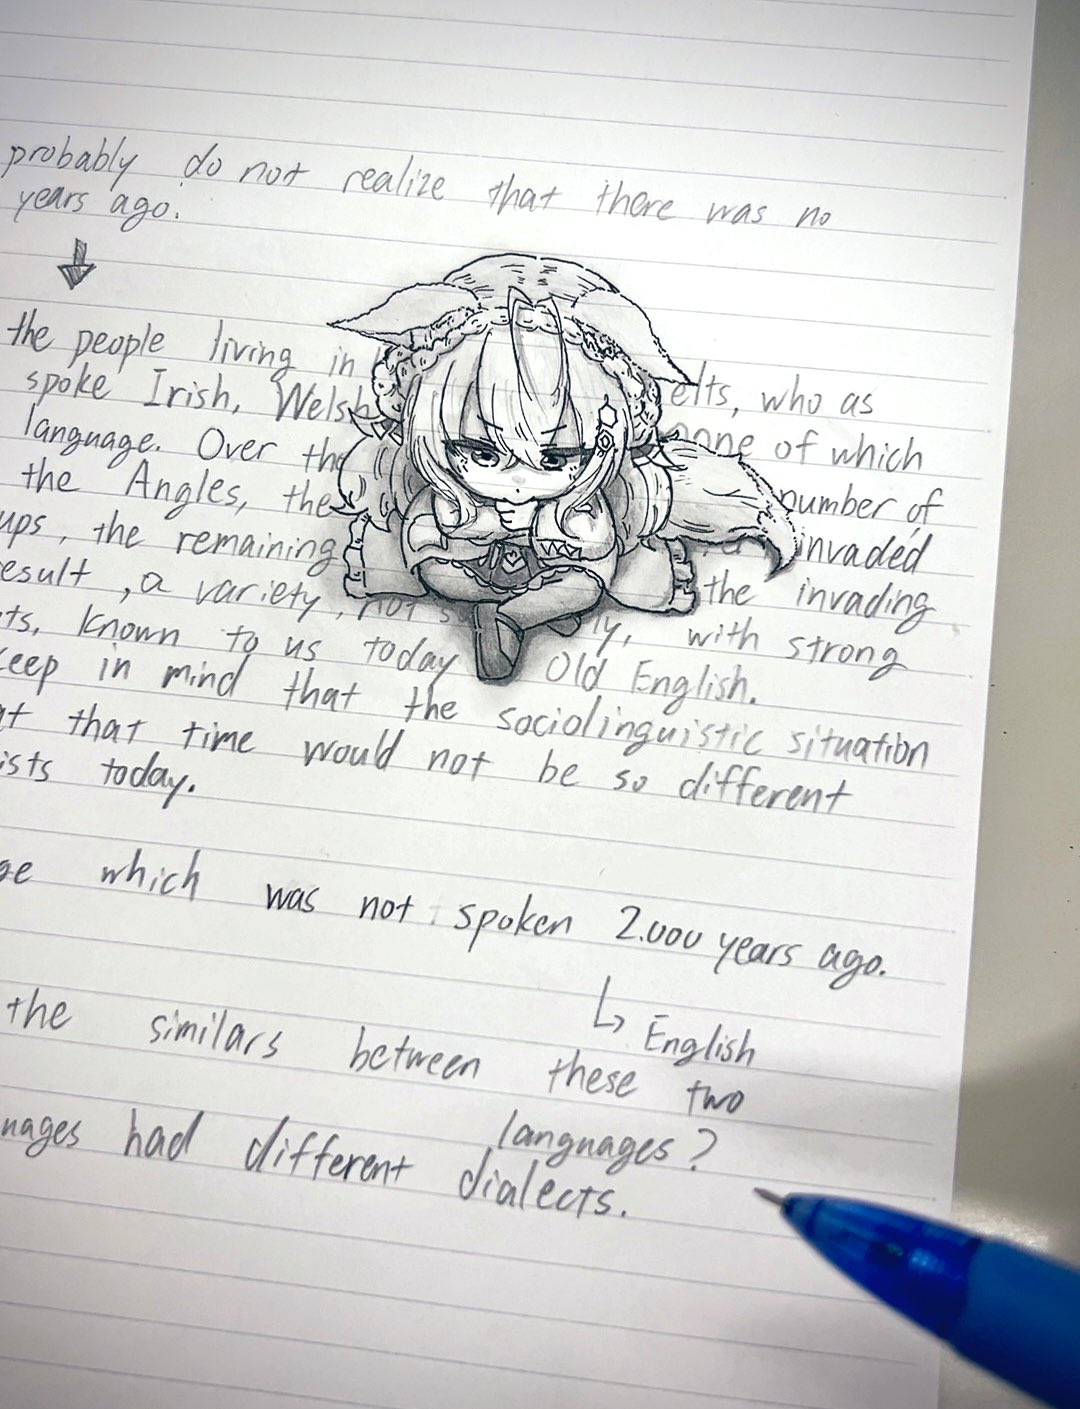 probably do not realize that there was no
years ago.
the people living in elts, who as
spoke Irish, Welsh none of which
language. Over the number of
the Angles, the invaded
ups, the remaining the invading
esult, a variety, not ly, with strong
ts, known to us today Old English.
keep in mind that the sociolinguistic situation
at that time would not be so different
ists today.
ge which was not spoken 2.000 years ago.
↳ English
the similars between these two
languages?
nages had different dialects.